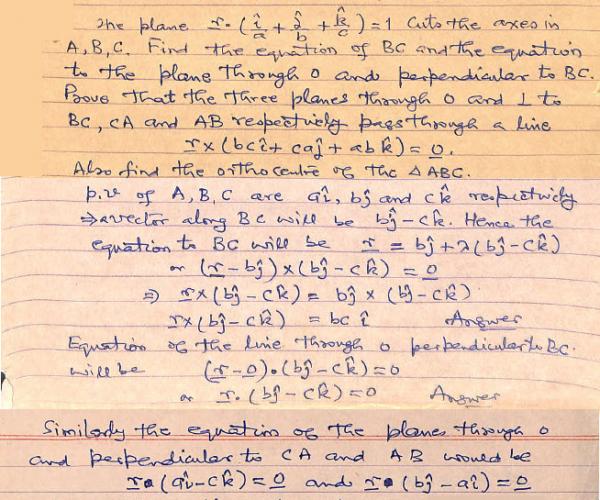 The plane r. (î/a + ĵ/b + k̂/c) = 1 cuts the axes in
A, B, C. Find the equation of BC and the equation
to the plane through O and perpendicular to BC.
Prove that the three planes through O and ⊥ to
BC, CA and AB respectively pass through a line
r × (bc î + ca ĵ + ab k̂) = 0.
Also find the orthocentre of the Δ ABC.
p.v of A, B, C are aî, bĵ and ck̂ respectively
⇒ a vector along BC will be bĵ - ck̂. Hence the
equation to BC will be r = bĵ + λ(bĵ - ck̂)
or (r - bĵ) × (bĵ - ck̂) = 0
⇒ r × (bĵ - ck̂) = bĵ × (bĵ - ck̂)
r × (bĵ - ck̂) = bc î Answer
Equation of the line through O perpendicular to BC.
will be (r - 0). (bĵ - ck̂) = 0
or r. (bĵ - ck̂) = 0 Answer
Similarly the equations of the planes through O
and perpendicular to CA and AB would be
r. (aî - ck̂) = 0 and r. (bĵ - aî) = 0